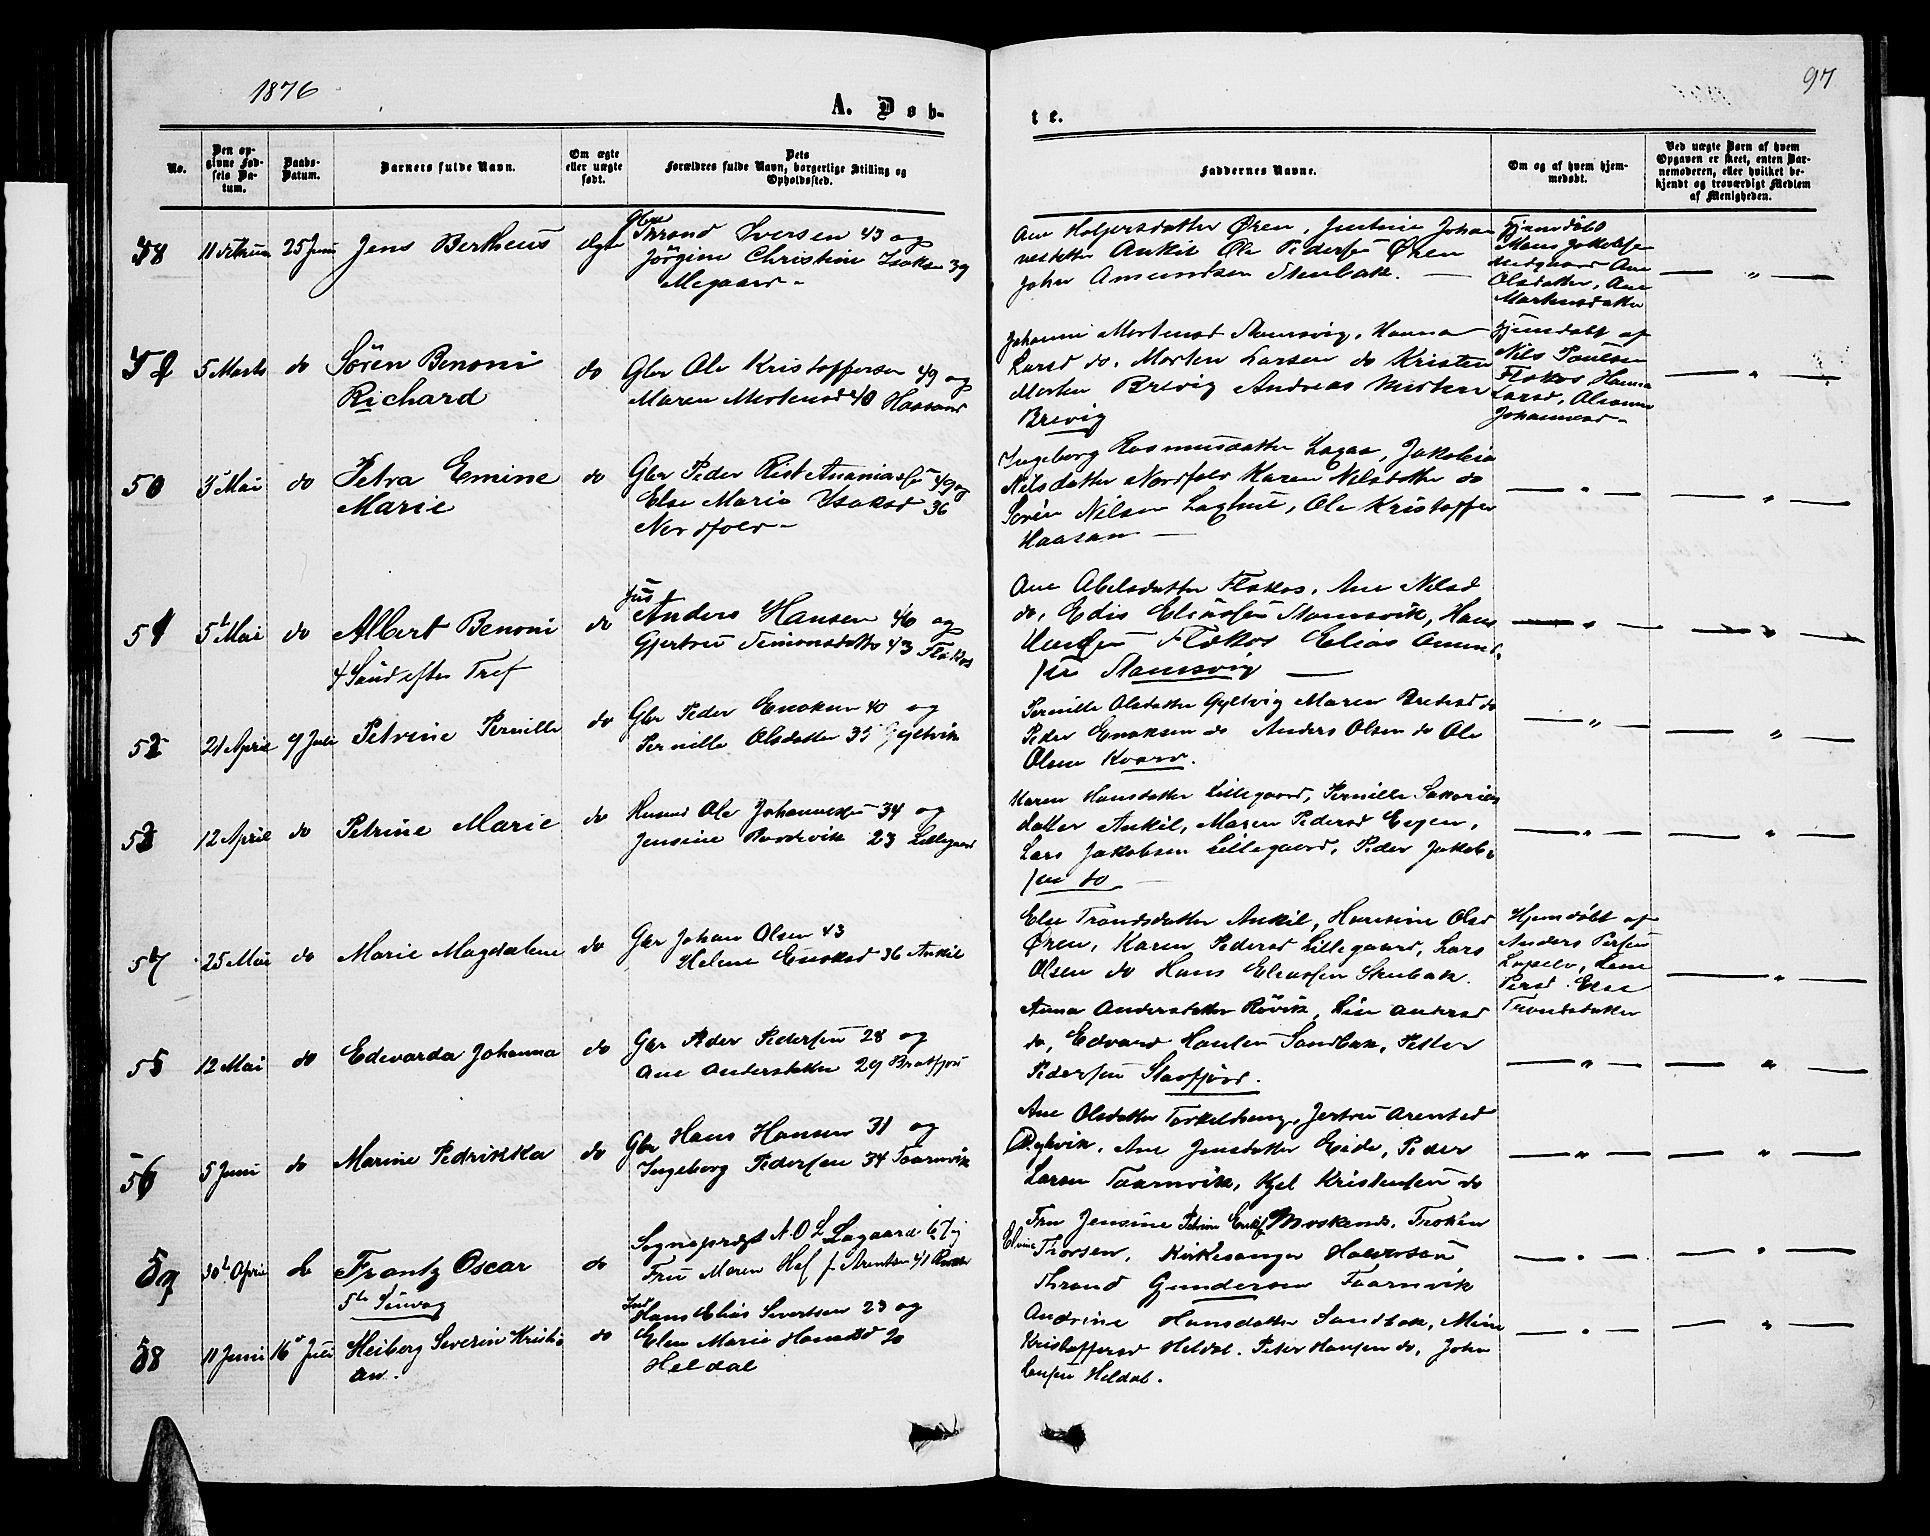 1876
97
A. Døb-
te.
No.
Den op-
givne Fød-
sels Da-
tum.
Daabs-
Datum.
Barnets fulde Navn.
Om ægte
eller uægte
født.
Dets
Forældres fulde Navn, borgerlige Stilling og
Opholdssted.
Faddernes Navne.
Om og af hvem hjem-
medøbt.
Ved uægte Børn af hvem
Opgaven er skeet, enten Bar-
nemoderen, eller hvilket be-
kjendt og troværdigt Medlem
af Menigheden.
48
25 Juni
Jens Bertheus
Ægte
Gbr
Thrond Iversen 43 og
Jörgine Christine Isaksen 39
Megaard
Ane Holgersdatter Ören, Justine Johan
nesdatter Ankil Ole Pedersen Ören
John Amundsen Stenbak.
Hjemdöbt
Mons Jakobsen
Ane
Olsdatter, Ane
Mortensdatter
5 Marts do
Sören Benoni
Richard
do
Gbr Ole Kristoffersen 49 og
Maren Mortensd 40 Haasand
Johanne Mortensd Stamsvig, Hanna
Larsd do, Morten Larsen do Kristen
Morten Brevig Andreas Morten
Brevig
Hjemdöbt af
Nils Paulsen
Flakos Hanna
Larsd, Oleanna
Johannesd
50
3 Mai do
Petra Emine
Marie
do
Gbr Peder Rist Ananiassen 49 og
Else Maria Isaksd 36
Nordfold
Ingeborg Rasmusdatter Lagaa, Jakobia
Nilsdatter Nordfold Karen Nilsdatter do
Sören Nilsen Laghus, Ole Kristoffer
Haasan
51
5 Mai do
Albert Benoni
4 Sönd efter Tref
do
Anders Hansen 46 og
Gjertru Simonsdatter 43 Flakos
Ane Abelsdatter Flakos, Ane Nilsd
do, Edis Eliassen Stamsvik, Hans
Flakos Elias Amund-
sen Stamsvig
52
21 April 9 Juli
Petrine Pernille
do
Gbr Peder Enoksen 40 og
Pernille Olsdatter 35 Gyltvik
Pernille Olsdatter Gyltvig Maren Pedersd do
Peder Enoksen do Anders Olsen do Ole
Olsen Kvarv.
53
12 April do
Petrine Marie
do
Husmd Ole Johannesen 34 og
Jensine Rordvik 23 Lillegaard
Karen Hansdatter Lillegaard, Pernille Sakarias
datter Ankil, Maren Pedersd Engen,
Lars Jakobsen Lillegaard, Peder Jakob-
sen do
54
25 Mai do
Marie Magdalene
do
Gbr Johan Olsen 43
Helene Enoksd 36 Ankil
Else Trondsdatter Ankil, Hansine Olsd
Ören, Karen Pedersd Lillegaard, Lars
Olsen do Hans Eliassen Stenbak.
Hjemdöbt af
Anders Persen
Lapelv, Lene
Persd. Else
Trondsdatter
55
12 Mai do
Edevarda Johanna
do
Gbr Peder Pedersen 28 og
Ane Andersdatter 29 Bratfjord
Anna Andersdatter Rövik, Andersd
do, Edvard Hansen Sandbak, Petter
Pedersen Slavfjord.
56
5 Juni do
Marine Pedrikka
do
Gbr Hans Hansen 31 og
Ingeborg Pedersen 34 Taarnvik
Ane Olsdatter Torkildseng, Jertru Arentsd
Dyksvik, Ane Jensdatter Eide, Peder
Larsen Taarnvik, Kjel Kristensen do
30 April do
Frantz Oscar
do
Sogneprest N.O.L. Lagaard 67 og
Fru Maren Hef f. Arentsen 41
Fru Jensine Petrine Moskenes. Fröken
Elvine Thorsen, Kirkesanger Halvorsen
Thrond Gundersen Taarnvik
58
11 Juni 16 Juli
Heiberg Severin Kristi-
an.
do
Hans Elias Severtsen 23 og
Elen Marie Hansd 20
Heldal
Andrine Hansdatter Sandbak, Mine
Kristoffersd Heldal. Peter Hansen do, John
Larsen Heldal.